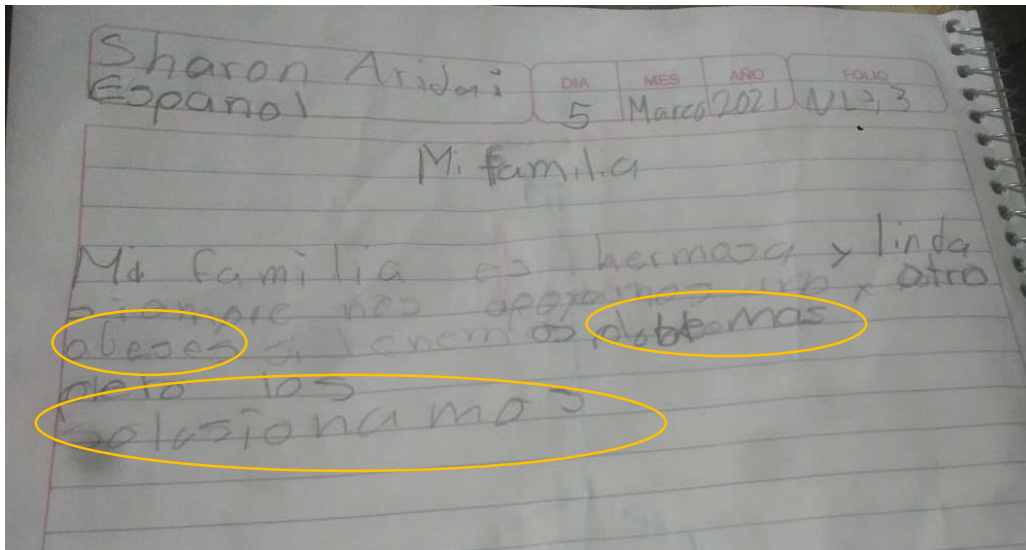 Sharon Aridai
Español
DIA MES AÑO FOLIO
5 Marco 2021 NL2,3
Mi familia
Mi familia es hermosa y linda
siempre nos apoyamos uno y otro
abeses si tenemos problemas
pero los
solusionamos